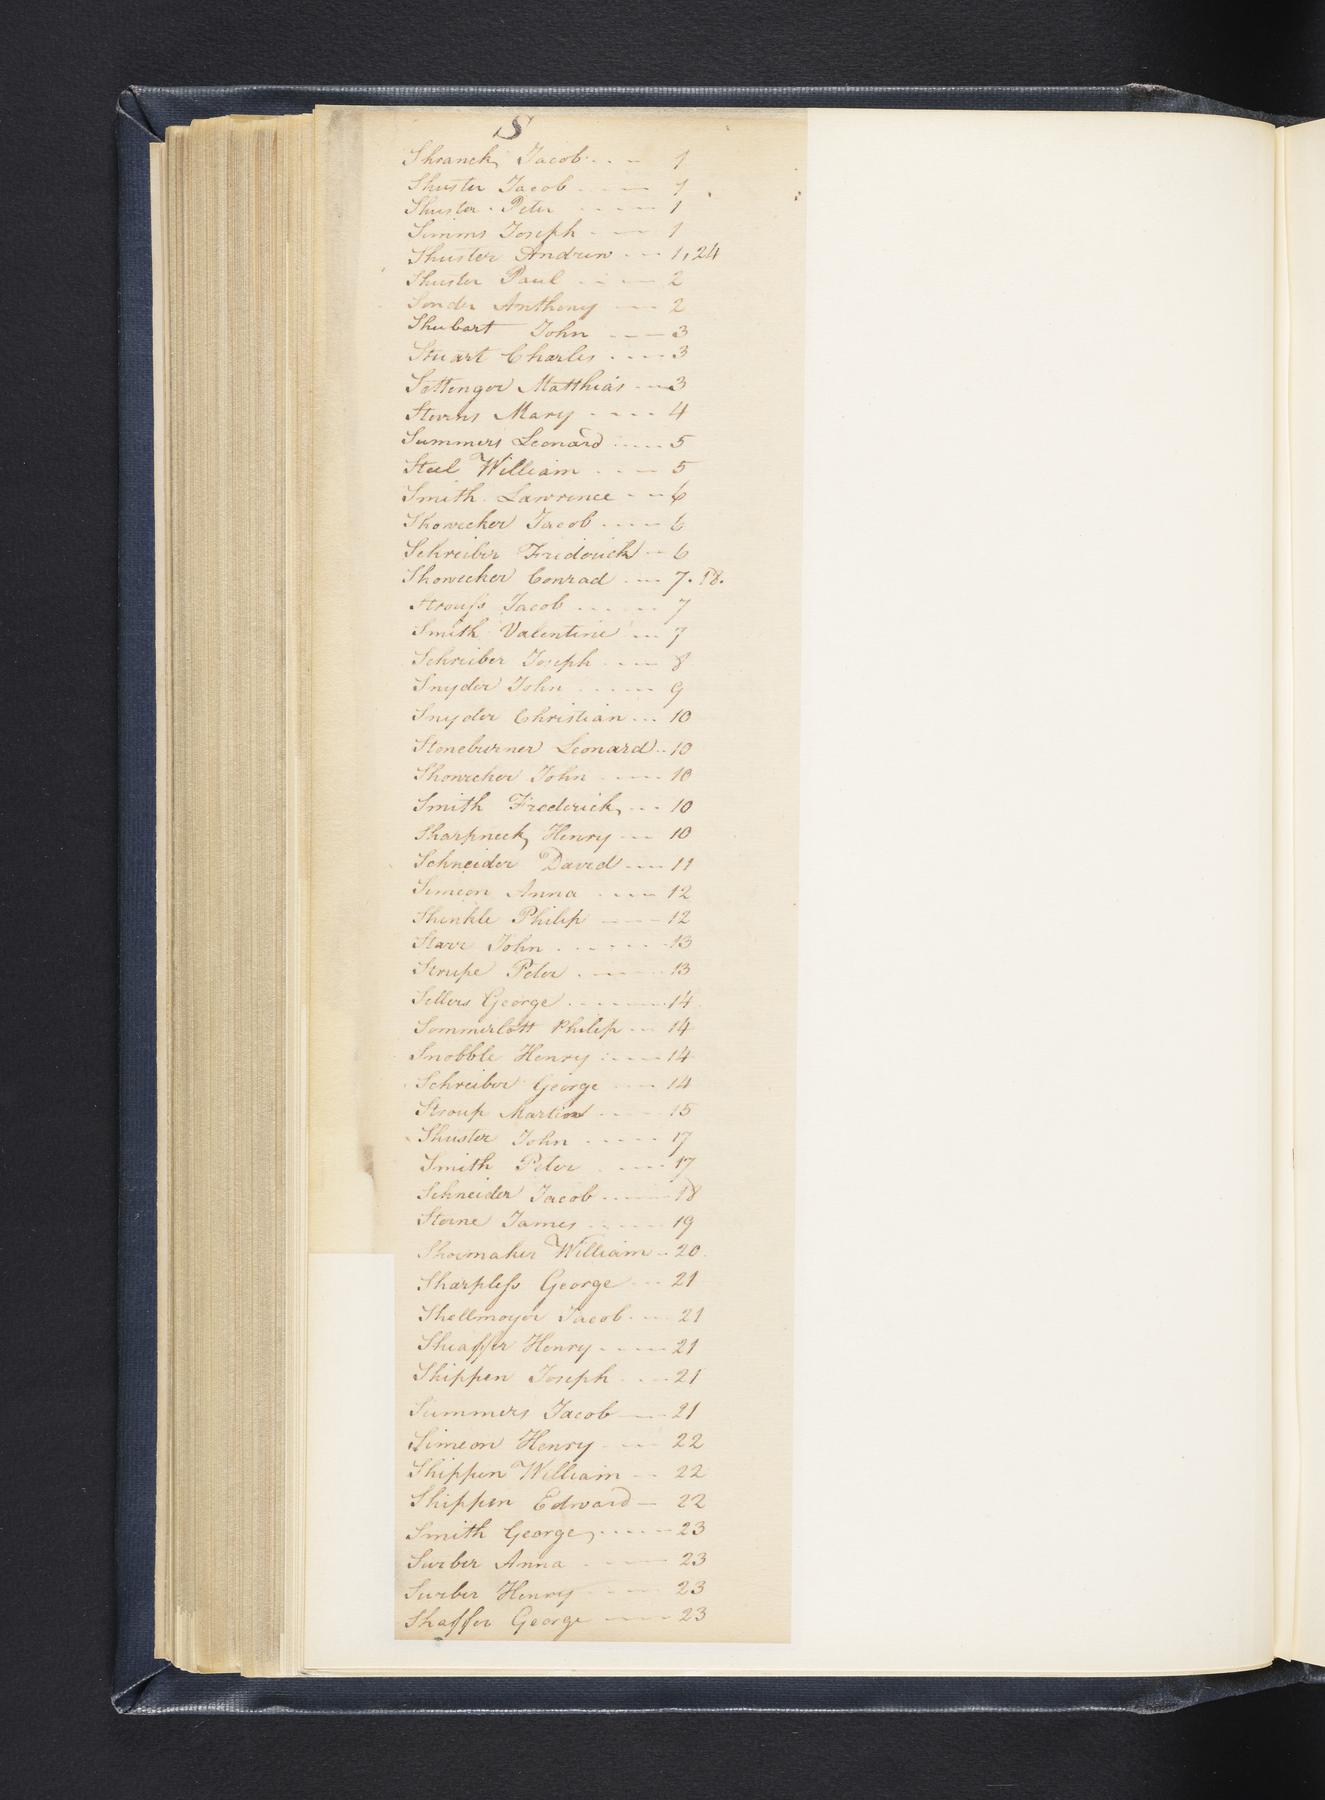 S
Shranck Jacob - - - 1
Shuster Jacob - - - 1
Shuster Peter - - - 1
Simms Joseph - - - 1
Shuster Andrew - - - 1, 24
Shuster Paul - - - 2
Sonder Anthony - - - 2
Shubart John - - - 3
Stuart Charles - - - 3
Settenger Matthias - - - 3
Stevens Mary - - - 4
Summers Leonard - - - 5
Steel William - - - 5
Smith Lawrence - - - 6
Showecker Jacob - - - 6
Schreiber Frederick - - 6
Showecker Conrad - - - 7. 18.
Strouss Jacob - - - 7
Smith Valentine - - - 7
Schreiber Joseph - - - 8
Snyder John - - - 9
Snyder Christian - - - 10
Stoneburner Leonard - - 10
Showecker John - - - 10
Smith Frederick - - - 10
Sharpneck Henry - - - 10
Schneider David - - - 11
Simeon Anna - - - 12
Shinkle Philip - - - 12
Starr John - - - 13
Strupe Peter - - - 13
Sellers George - - - 14
Sommerlott Philip - - - 14
Snobble Henry - - - 14
Schreiber George - - - 14
Stroup Martin - - - 15
Shuster John - - - 17
Smith Peter - - - 17
Schneider Jacob - - - 18
Sterne James - - - 19
Shoemaker William - - 20.
Sharpless George - - - 21
Shellmoyer Jacob - - - 21
Sheaffer Henry - - - 21
Shippen Joseph - - - 21
Summers Jacob - - - 21
Simeon Henry - - - 22
Shippen William - - 22
Shippen Edward - 22
Smith George - - - 23
Surber Anna - - - 23
Surber Henry - - - 23
Shaffer George - - - 23